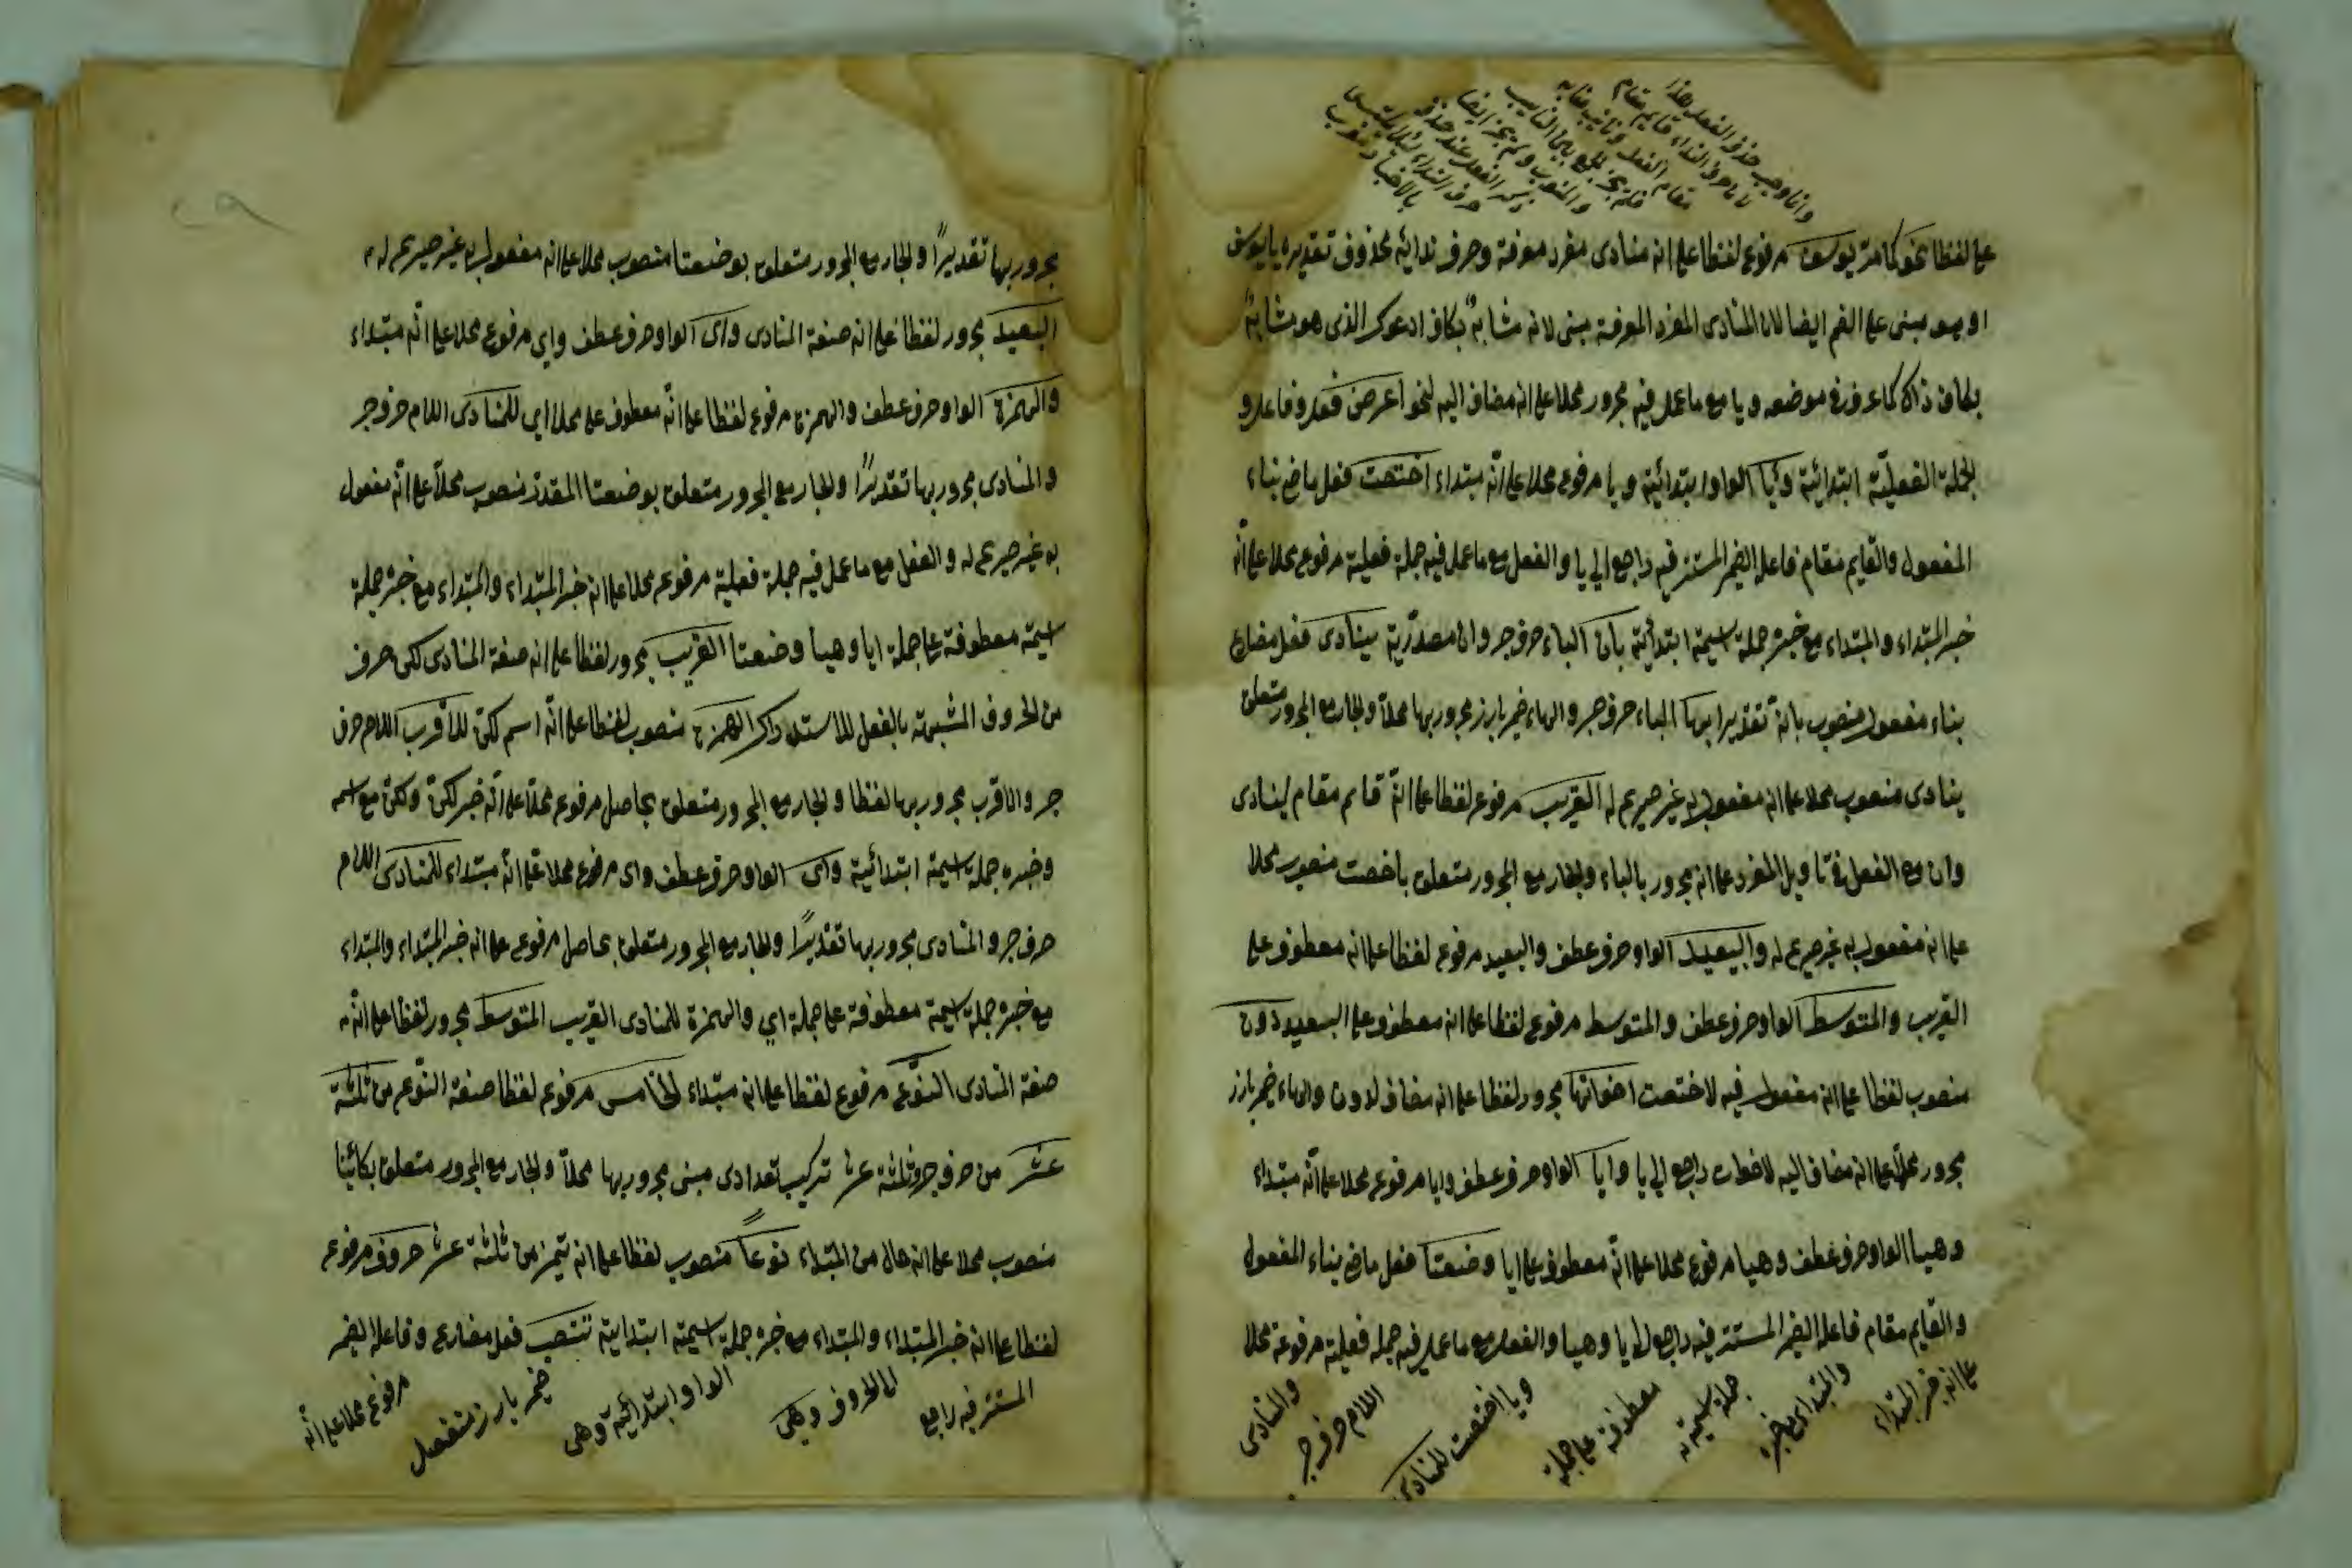 وانما وجب حذف الفعل هذا
لان حرف النداء قايم مقام
مقام الفعل ونايب منابه
فلم يجز الجمع بين النايب
والمنوب ولم يجز ايضا
ذكر الفعل عند حذف
حرف النداء لئلا يلتبس
بالاخبار
على لفظا نحو كما مر يوسف مرفوع لفظا على انه منادى مفرد معرفة وحرف ندائه محذوف تقديره يا يوسف
او هو مبنى على الضم ايضا لان المنادى المفرد المعرفة مبنى لانه مشابه بكاف ادعوك الذى هو مشابه
بكاف ذاك كما عرف فى موضعه ويا مع ما عمل فيه مجرور محلا على انه مضاف اليه لنحو اعرض فعل وفاعل و
الجملة الفعلية ابتدائية ويا الواو ابتدائية ويا مرفوع محلا على انه مبتداء اختصت فعل ماض بناء
المفعول والقايم مقام فاعله الضمير المستتر فيه راجع الى يا والفعل مع ما عمل فيه جملة فعلية مرفوع محلا على انه
خبر المبتداء والمبتداء مع خبره جملة اسمية ابتدائية بان الباء حرف جر وان مصدرية ينادى فعل مضارع
بناء مفعول منصوب بان تقديرا بها الباء حرف جر والهاء ضمير بارز مجرور بها محلا والجار مع المجرور متعلق
ينادى منصوب محلا على انه مفعول به غير صريح له القريب مرفوع لفظا على انه قايم مقام لينادى
وان مع الفعل فى تاويل المفرد على انه مجرور بالباء والجار مع المجرور متعلق باختصت منصوب محلا
على انه مفعول به غير صريح له والبعيد الواو حرف عطف والبعيد مرفوع لفظا على انه معطوف على
القريب والمتوسط الواو حرف عطف والمتوسط مرفوع لفظا على انه معطوف على البعيد دون
منصوب لفظا على انه مفعول فيه لاختصت اخواتها مجرور لفظا على انه مضاف لدون والهاء ضمير بارز
مجرور محلا على انه مضاف اليه لاخوات راجع الى يا وايا الواو حرف عطف وايا مرفوع محلا على انه مبتداء
وهيا الواو حرف عطف وهيا مرفوع محلا على انه معطوف على ايا وضعتا فعل ماض بناء المفعول
والقايم مقام فاعله الضمير المستتر فيه راجع الى ايا وهيا والفعل مع ما عمل فيه جملة فعلية مرفوعة محلا
على انه خبر المبتداء
والمبتداء مع خبره
جملة اسمية
معطوفة على جملة
ويا اختصت للمنادى
اللام حرف جر
والمنادى
مجرور بها تقديرًا والجار مع المجرور متعلق بوضعتا منصوب محلا على انه مفعول به غير صريح له
البعيد مجرور لفظا على انه صفة المنادى واى الواو حرف عطف واي مرفوع محلا على انه مبتداء
والهمزة الواو حرف عطف والهمزة مرفوع لفظا على انه معطوف على محلا اي للمنادى اللام حرف جر
والمنادى مجرور بها تقديرًا والجار مع المجرور متعلق بوضعتا المقدر منصوب محلا على انه مفعول
به غير صريح له والفعل مع ما عمل فيه جملة فعلية مرفوعه محلا على انه خبر المبتداء والمبتداء مع خبره جملة
اسمية معطوفة على جملة ايا وهيا وضعتا القريب مجرور لفظا على انه صفة المنادى لكن حرف
من الحروف المشبهة بالفعل للاستدراك الهمزة منصوب لفظا على انه اسم لكن للاقرب اللام حرف
جر والاقرب مجرور بها لفظا والجار مع المجرور متعلق بحاصل مرفوع محلا على انه خبر لكن ولكن مع اسمه
وخبره جملة اسمية ابتدائية واى الواو حرف عطف واى مرفوع محلا على انه مبتداء للمنادى اللام
حرف جر والمنادى مجرور بها تقديرًا والجار مع المجرور متعلق بحاصل مرفوع على انه خبر المبتداء والمبتداء
مع خبره جملة اسمية معطوفة على جملة اي والهمزة للمنادى القريب المتوسط مجرور لفظا على انه
صفة المنادى النوع مرفوع لفظا على انه مبتداء الخامس مرفوع لفظا صفة النوع من ثلثة
عشر من حرف جر وثلثة عشر تركيب تعدادى مبنى مجرور بها محلا والجار مع المجرور متعلق بكائنا
منصوب محلا على انه حال من المبتداء نوعاً منصوب لفظا على انه تميز من ثلثة عشر حروف مرفوع
لفظا على انه خبر المبتداء والمبتداء مع خبره جملة اسمية ابتدائية تنتصب فعل مضارع وفاعله الضمير
المستتر فيه راجع
الى الحروف وهى
الواو ابتدائية وهى
ضمير بارز منفصل
مرفوع محلا على انه